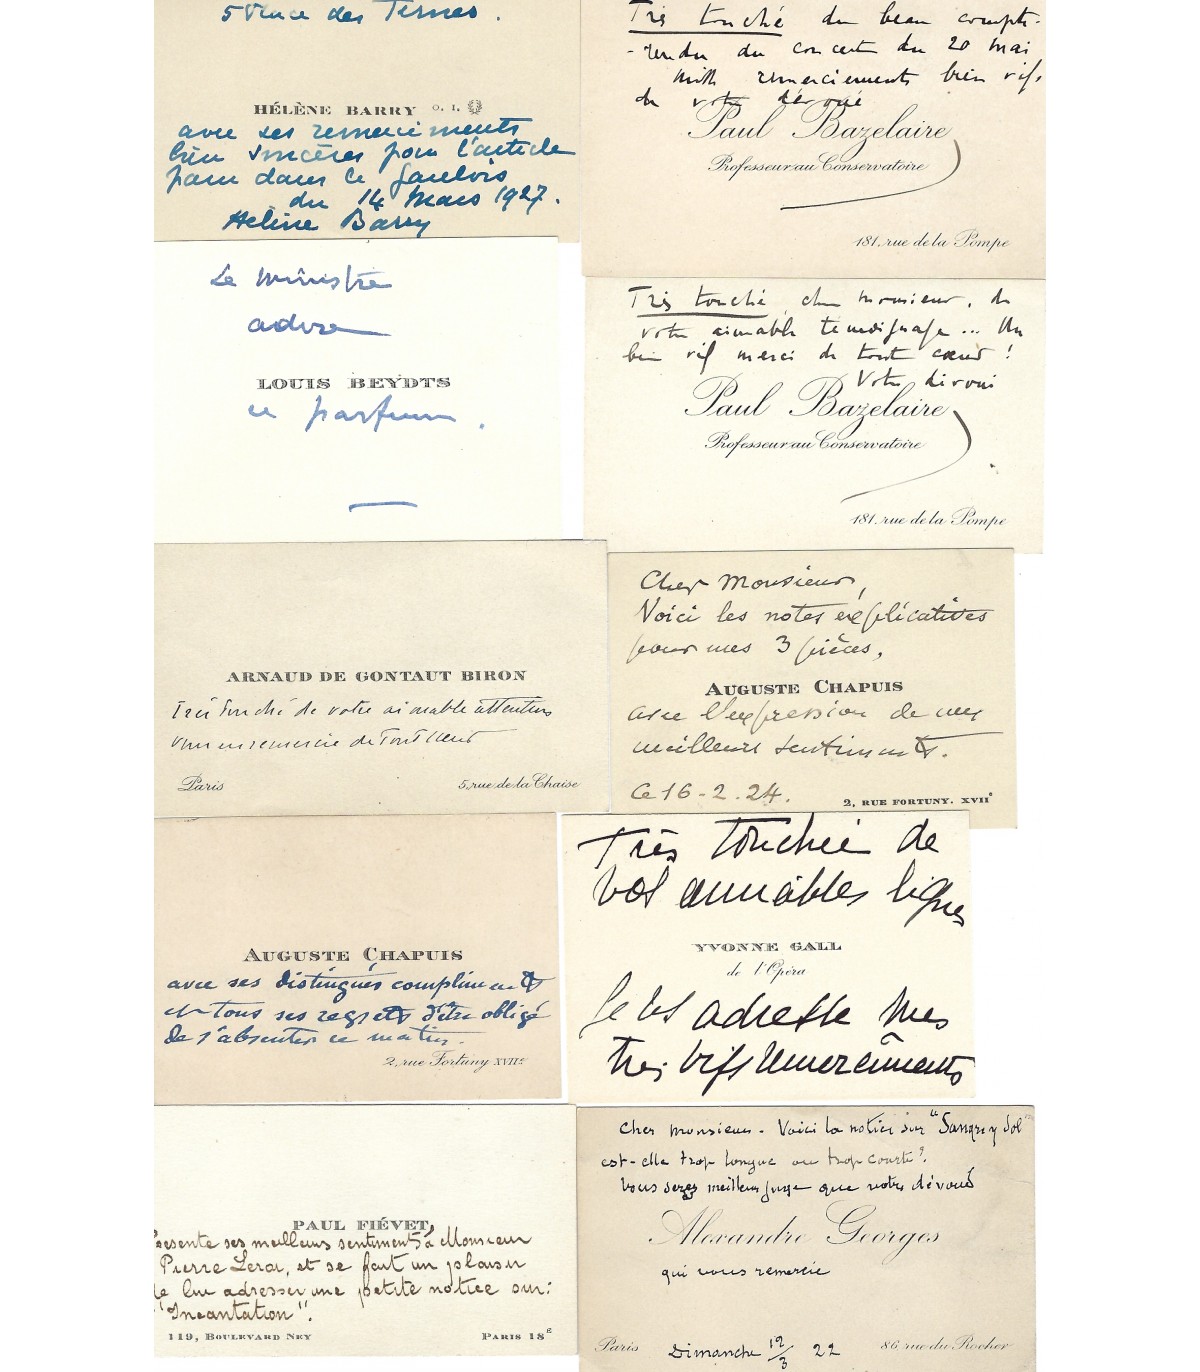 5 Place des Ternes.
HÉLÈNE BARRY O. I.
avec ses remerciements
bien sincères pour l'article
paru dans le Gaulois
du 14 Mars 1927.
Hélène Barry
Très touché du beau compte-
-rendu du concert du 20 mai
Mille remerciements bien vifs
de votre dévoué
Paul Bazelaire
Professeur au Conservatoire
181, rue de la Pompe
Le ministre
adore
LOUIS BEYDTS
ce parfum.
Très touché, cher monsieur, de
votre aimable témoignage... Un
bien vif merci de tout cœur!
Votre dévoué
Paul Bazelaire
Professeur au Conservatoire
181, rue de la Pompe
ARNAUD DE GONTAUT BIRON
Très touché de votre aimable attention
vous en remercie de tout cœur
Paris
5, rue de la Chaise
Cher Monsieur,
Voici les notes explicatives
pour mes 3 pièces,
AUGUSTE CHAPUIS
avec l'expression de mes
meilleurs sentiments.
Ce 16-2.24.
2, RUE FORTUNY. XVIIe
AUGUSTE CHAPUIS
avec ses distingués compliments
et tous ses regrets d'être obligé
de s'absenter ce matin.
2, rue Fortuny XVIIe
Très touchée de
vos aimables lignes
YVONNE GALL
de l'Opéra
Je vs adresse mes
très vifs remerciements
PAUL FIÉVET,
résente ses meilleurs sentiments à Monsieur
Pierre Leroi, et se fait un plaisir
de lui adresser une petite notice sur:
"Incantation".
119, BOULEVARD NEY
PARIS 18e
Cher Monsieur - Voici la notice sur "Sangre y Sol"
est-elle trop longue ou trop courte?
Vous serez meilleur juge que votre dévoué
Alexandre Georges
qui vous remercie
Paris
Dimanche 12/3 22
86, rue du Rocher